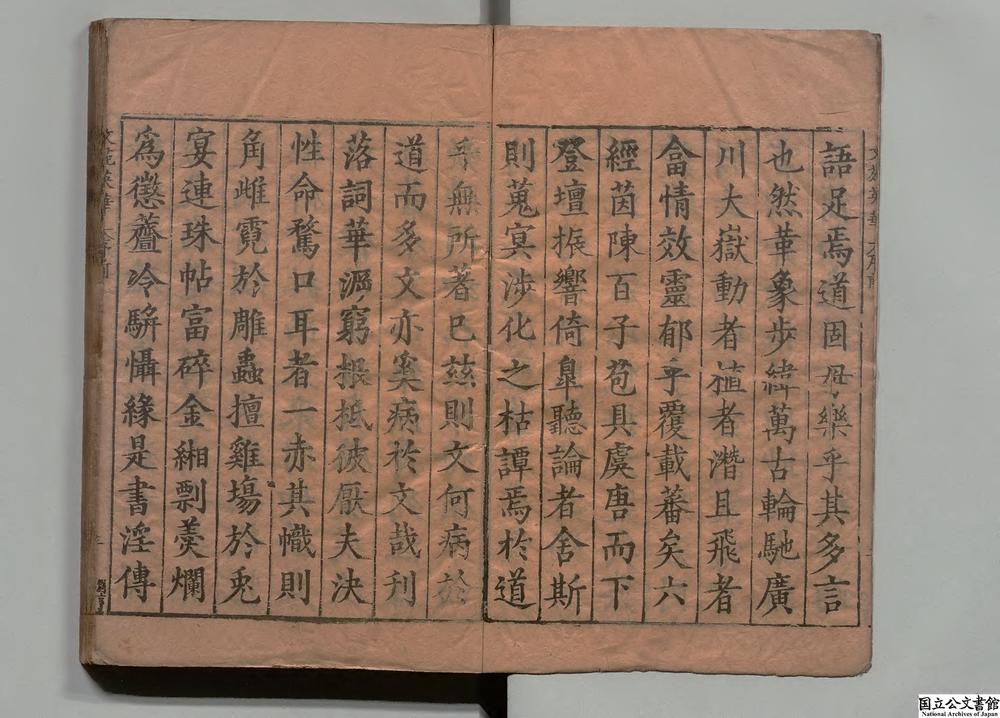 語足焉道固毋樂乎其多言
也然革象步緯萬古輪馳廣
川大嶽動者植者潛且飛者
畣情效靈郁乎覆載蕃矣六
經茵陳百子苞具虞唐而下
登壇振響倚皐聽論者舍斯
則蒐冥涉化之枯譚焉於道
乎無所著已玆則文何病於
道而多文亦奚病於文哉刋
落詞華㴑窮根柢彼厭夫決
性命騖口耳者一赤其幟則
角雌霓於雕蟲擅雞塲於兎
宴連珠帖富碎金緗剽羹爛
爲懲虀冷騈懾緣是書淫傳
文苑英華
國立公文書館
National Archives of Japan